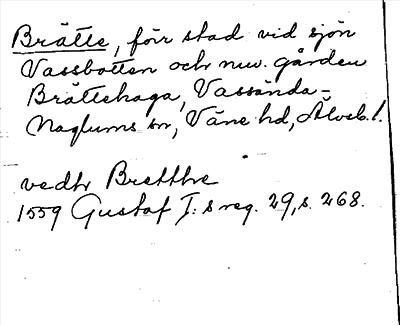 Brätte, förr stad vid sjön
Vassbotten och nuv. gården
Brättehaga, Vassända-
Naglums sn, Väne hd, Älvsb. l.
vedtr Bretthe
1559 Gustaf I:s reg. 29, s. 268.